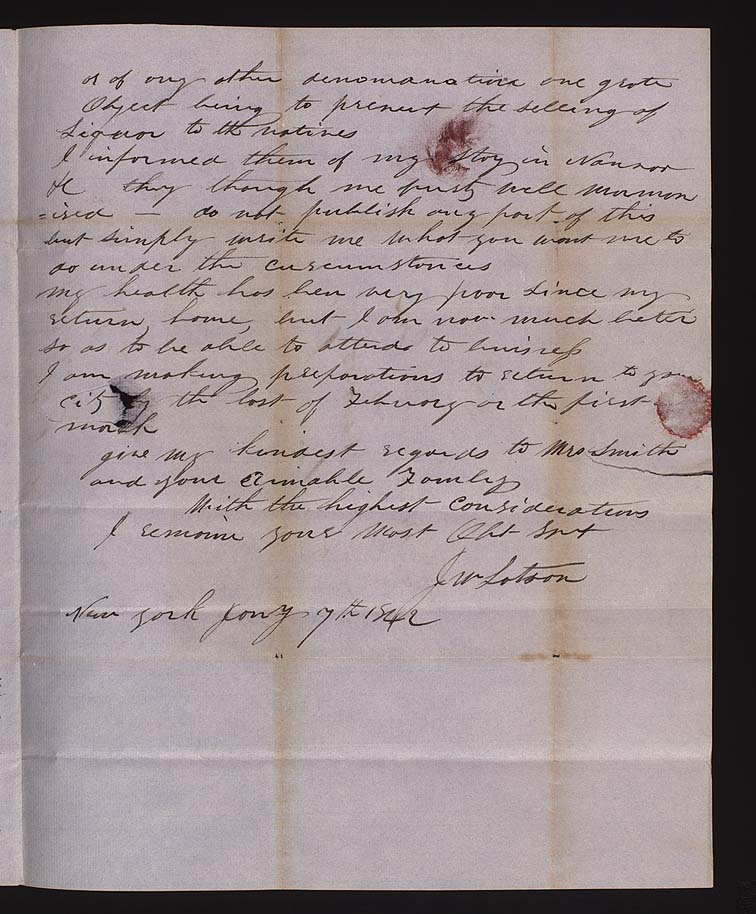 or of any other denomanation one grate
Object being to prevent the selling of
Liquor to the natives
I informed them of my stay in Nauvoo
&c they though me prety well mormon
=ised — do not publish any part of this
but simply write me what you want me to
do under the curcumstances
my health has ben very poor since my
return home, but I am now much beter
so as to be able to attend to buisness
I am making preparations to return to your
city by the last of Febuary or the first
march
give my kindest regards to Mrs Smith
and your aimable Famley
With the highest Considerations
I remain your Most Obt Svt
J W Latson
New York Jany 7th 1842